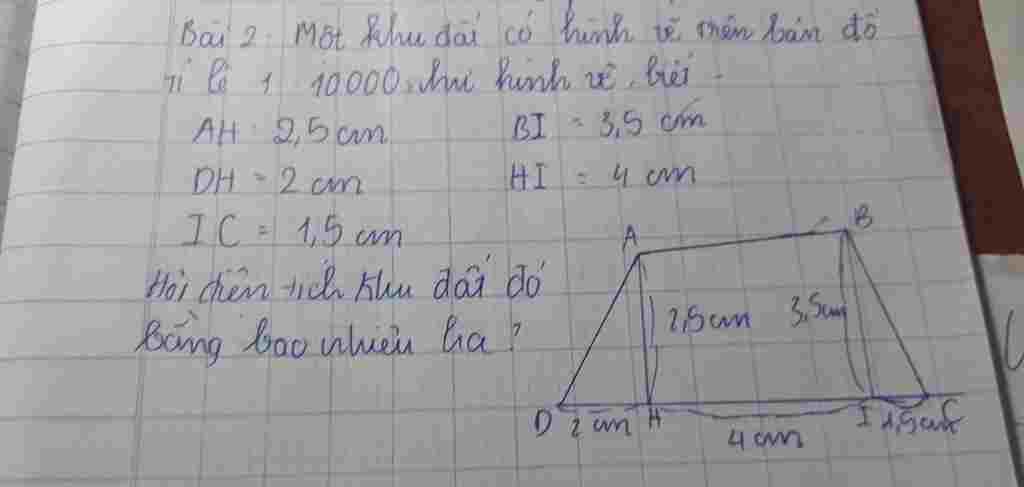 Bài 2. Một khu đất có hình vẽ trên bản đồ
tỉ lệ 1 10000, như hình vẽ, biết
AH = 2,5 cm BI = 3,5 cm
DH = 2 cm HI = 4 cm
IC = 1,5 cm
Hỏi diện tích khu đất đó
bằng bao nhiêu ha?
A B
2,5cm 3,5cm
D 2 cm H I 1,5cm C
4 cm